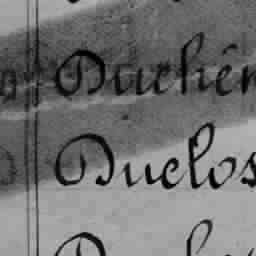 Duchên
Duclos